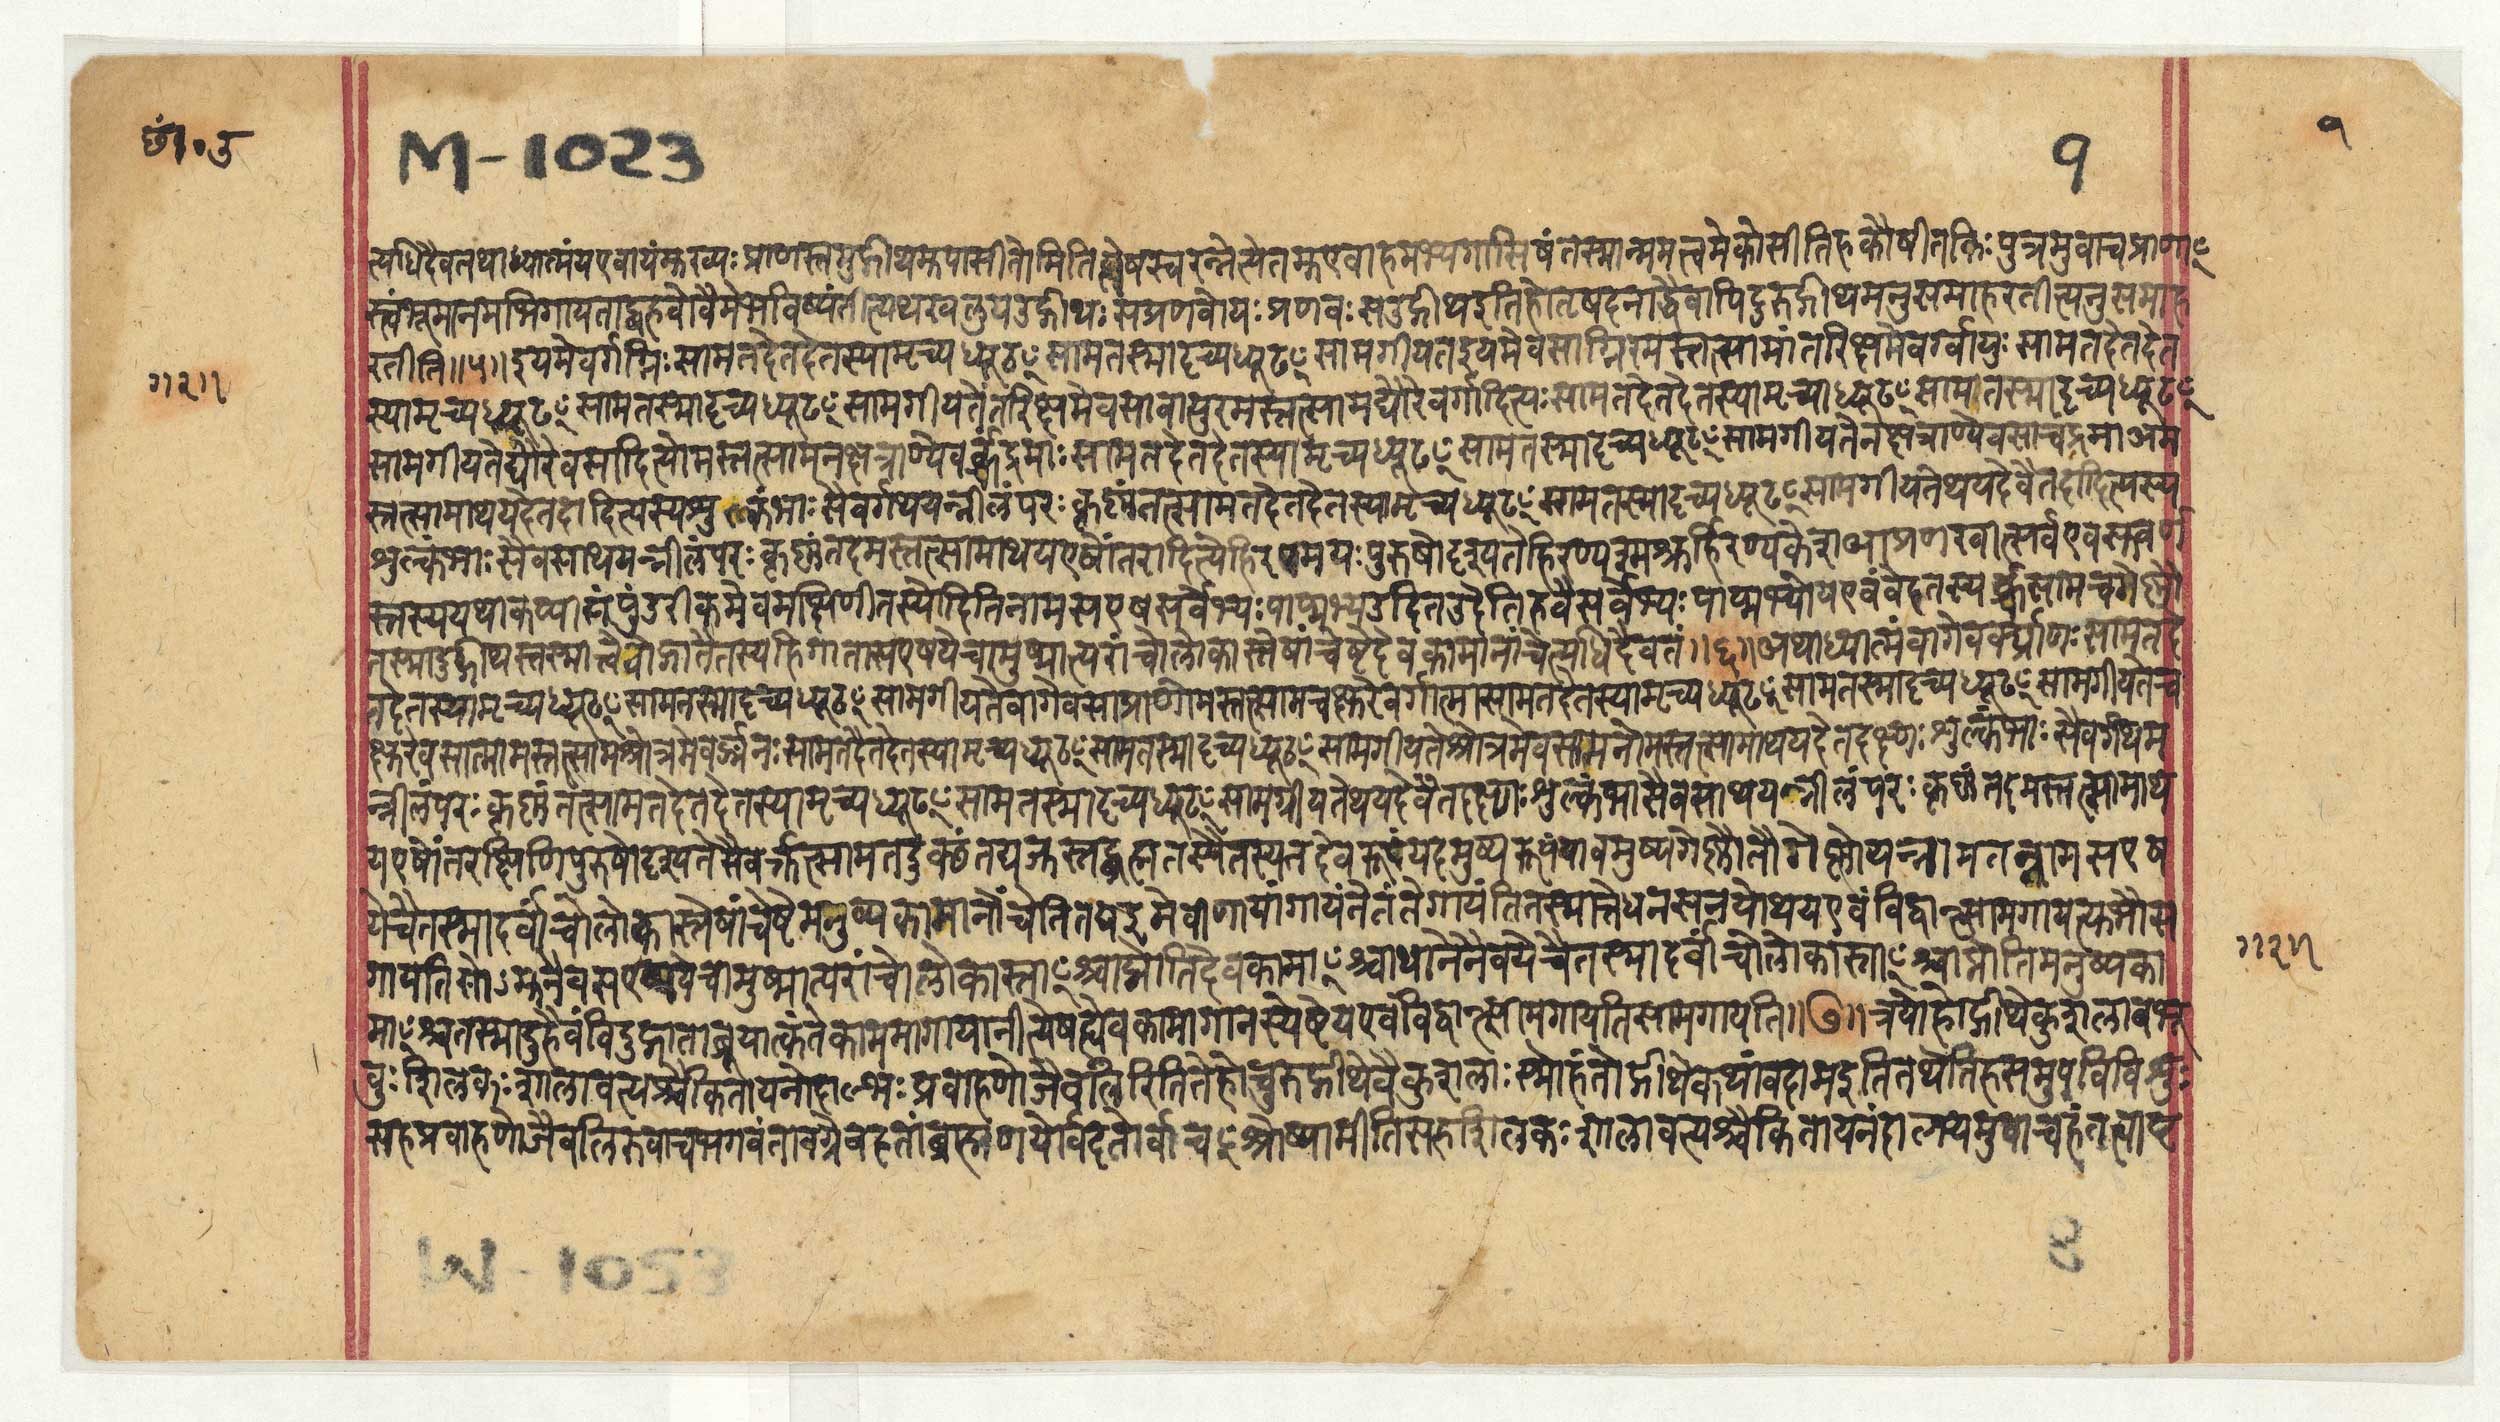 छां॰उ
M-1023
१
१
त्यधिदैवतथाध्यात्मंयएवायंमुख्यः प्राणस्तमुद्गीथमुपासीतोमितिह्येषस्वरन्नेत्येतमुएवाहमभ्यगासिषंतस्मान्ममत्वमेकोसीतिहकौषीतकिः पुत्रमुवाचप्राणाꣳ
स्त्वंभूमानमभिगायताद्बहवोवैमेभविष्यंतीत्यथखलुयउद्गीथः सप्रणवोयः प्रणवः सउद्गीथइतिहोतृषदनाद्धैवापिदुरुद्गीथमनुसमाहरतीत्यनुसमाह
रतीति॥५॥इयमेवर्गग्निः सामतदेतदेतस्यामृच्यध्यूढꣳसामतस्मादृच्यध्यूढꣳसामगीयतइयमेवसाग्निरमस्तत्सामांतरिक्षमेवर्ग्वायुः सामतदेतदेत
॥२॥
स्यामृच्यध्यूढꣳसामतस्मादृच्यध्यूढꣳसामगीयतेंतरिक्षमेवसावायुरमस्तत्सामद्यौरेवर्गादित्यः सामतदेतदेतस्यामृच्याध्यूढꣳसामतस्मादृच्यध्यूढꣳ
सामगीयतेद्यौरेवसादित्योमस्तत्सामनक्षत्राण्येवर्क्चंद्रमाः सामतदेतदेतस्यामृच्यध्यूढꣳसामतस्मादृच्यध्यूढꣳसामगीयतेनक्षत्राण्येवसाचंद्रमाअम
स्तत्सामाथयदेतदादित्यस्यशुक्लंभाः सैवर्गथयन्नीलंपरः कृष्णंतत्सामतदेतदेतस्यामृच्यध्यूढꣳसामतस्मादृच्यध्यूढꣳसामगीयतेथयदेवैतदादित्यस्य
शुक्लंभाः सैवसाथयन्नीलंपरः कृष्णंतदमस्तत्सामाथयएषोंतरादित्येहिरण्मयः पुरुषोदृश्यतेहिरण्यश्मश्रुर्हिरण्यकेशआप्रणखात्सर्वएवसुवर्ण
स्तस्ययथाकप्यासंपुंडरीकमेवमक्षिणीतस्योदितिनामसएषसर्वेभ्यः पाप्मभ्यउदितउदेतिहवैसर्वेभ्यः पाप्मभ्योयएवंवेदतस्यर्क्चसामचगेष्णौ
तस्मादुद्गीथस्तस्मात्त्वेवोद्गातैतस्यहिगातासएषयेचामुष्मात्परांचोलोकास्तेषांचेष्टेदेवकामानांचेत्यधिदैवतं॥६॥अथाध्यात्मंवागेवर्क्प्राणः सामतदे
तदेतस्यामृच्यध्यूढꣳसामतस्मादृच्यध्यूढꣳसामगीयतेवागेवसाप्राणोमस्तत्सामचक्षुरेवर्गात्मासामतदेतस्यामृच्यध्यूढꣳसामतस्मादृच्यध्यूढꣳसामगीयतेच
क्षुरेवसात्मामस्तत्सामश्रोत्रमेवर्ङ्मनः सामतदेतदेतस्यामृच्यध्यूढꣳसामतस्मादृच्यध्यूढꣳसामगीयतेश्रोत्रमेवसामनोमस्तत्सामाथयदेतदक्ष्णः शुक्लंभाः सैवर्गथय
न्नीलंपरः कृष्णंतत्सामतदेतदेतस्यामृच्यध्यूढꣳसामतस्मादृच्यध्यूढꣳसामगीयतेथयदेवैतदक्ष्णः शुक्लंभासैवसाथयन्नीलंपरः कृष्णंतदमस्तत्सामाथ
यएषोंतरक्षिणिपुरुषोदृश्यतेसैवर्क्तत्सामतदुक्थंतद्यजुस्तद्ब्रह्मतस्यैतस्यतदेवरूपंयदमुष्यरूपंयावमुष्यगेष्णौतौगेष्णौयन्नामतन्नामसएष
येचैतस्मादर्वांचोलोकास्तेषांचेष्टेमनुष्यकामानांचेतितद्यइमेवीणायांगायंतेतंतेगायंतितस्मात्तेधनसनयोथयएवंविद्वान्सामगायत्युभौस
॥२॥
गायतिसोऽमुनैवसएषयेचामुष्मात्परांचोलोकास्ताꣳश्चाप्नोतिदेवकामाꣳश्चाथानेनैवयेचैतस्मादर्वांचोलोकास्ताꣳश्चाप्नोतिमनुष्यका
माꣳश्चतस्मादुहैवंविदुद्गाताब्रूयात्कंतेकाममागायानीत्येषह्येवकामागानस्येष्टेयएवंविद्वान्सामगायतिसामगायति॥७॥त्रयोहोद्गीथेकुशलाबभू
वुः शिलकः शालावत्यश्चैकितायनोदाल्भ्यः प्रवाहणोजैवलिरितितेहोचुरुद्गीथेवैकुशलाः स्मोहंतोद्गीथेकथांवदामइतितथेतिहसमुपविविशुः
सहप्रवाहणोजैवलिरुवाचभगवंतावग्रेवदतांब्राह्मणयोर्वदतोर्वाचꣳश्रोष्यामीतिसहशिलकः शालावत्यश्चैकितायनंदाल्भ्यमुवाचहंतत्वापृ